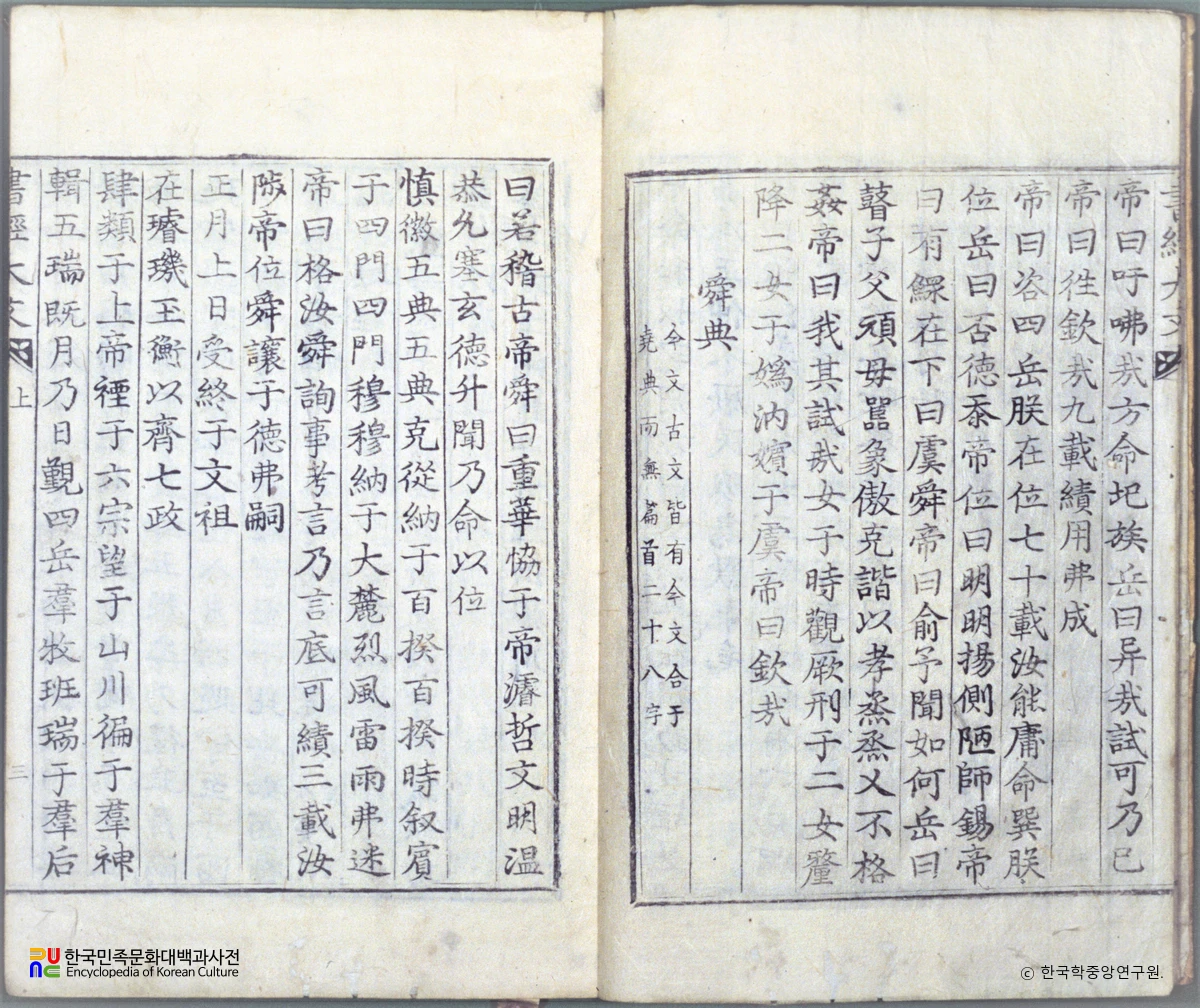 書經大文
帝曰吁咈哉方命圮族岳曰异哉試可乃已
帝曰徃欽哉九載績用弗成
帝曰咨四岳朕在位七十載汝能庸命巽朕
位岳曰否德忝帝位曰明明揚側陋師錫帝
曰有鰥在下曰虞舜帝曰俞予聞如何岳曰
瞽子父頑母嚚象傲克諧以孝烝烝乂不格
姦帝曰我其試哉女于時觀厥刑于二女釐
降二女于嬀汭嬪于虞帝曰欽哉
舜典
今文古文皆有今文合于
堯典而無篇首二十八字
曰若稽古帝舜曰重華恊于帝濬哲文明温
恭允塞玄德升聞乃命以位
慎徽五典五典克從納于百揆百揆時叙賓
于四門四門穆穆納于大麓烈風雷雨弗迷
帝曰格汝舜詢事考言乃言底可績三載汝
陟帝位舜讓于德弗嗣
正月上日受終于文祖
在璿璣玉衡以齊七政
肆類于上帝禋于六宗望于山川徧于羣神
輯五瑞既月乃日覲四岳羣牧班瑞于羣后
書經大文 上 三
한국민족문화대백과사전
Encyclopedia of Korean Culture
ⓒ 한국학중앙연구원.